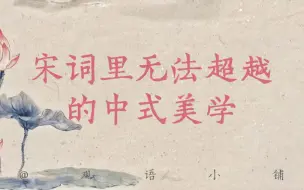 宋词里无法超越
的中式美学
语小铺